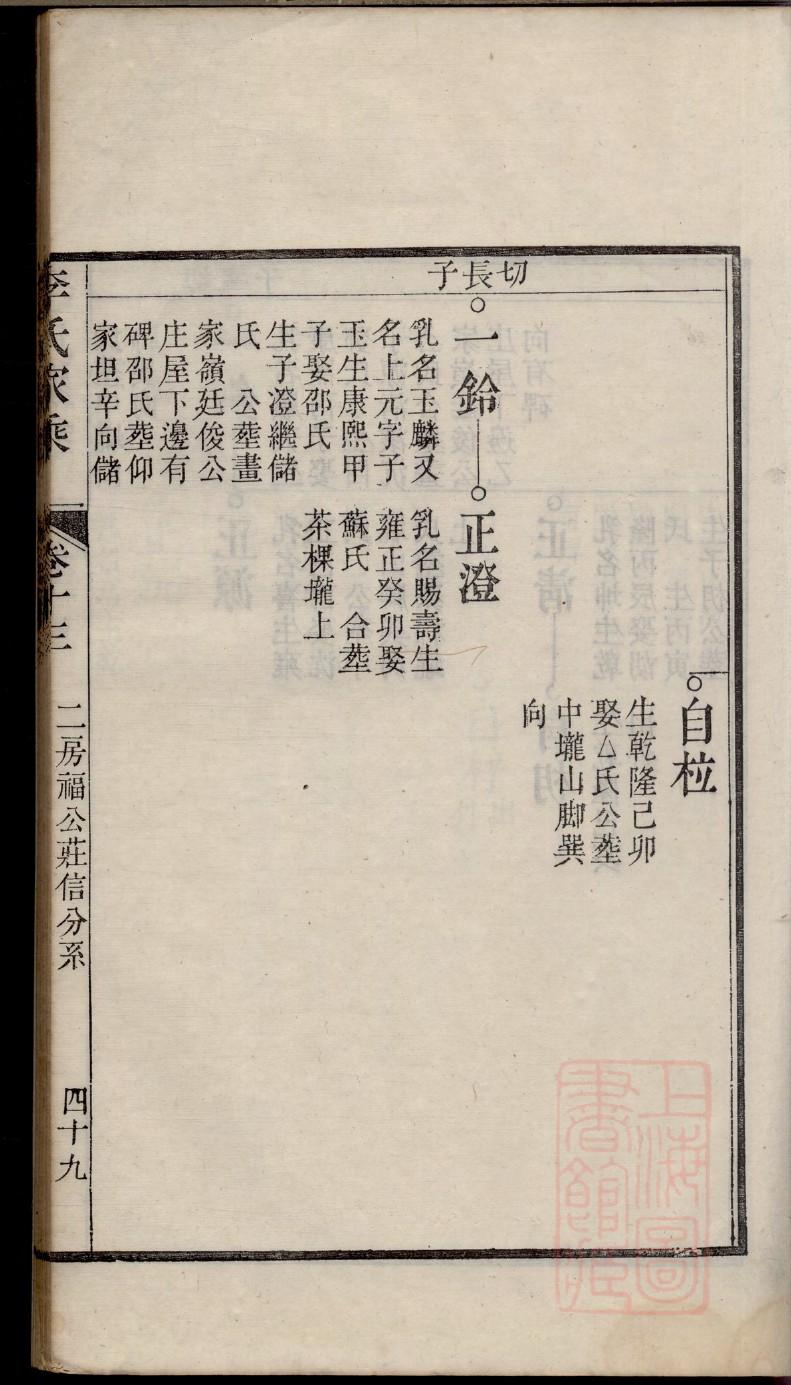 自柆
生乾隆己卯
娶厶氏公塟
中壠山脚巽
向
切長子
一鈴
乳名玉麟又
名上元字子
玉生康熙甲
子娶邵氏
生子澄繼儲
氏　公塟畫
家嶺廷俊公
庄屋下邊有
碑邵氏塟仰
家坦辛向儲
正澄
乳名賜壽生
雍正癸卯娶
蘇氏　合塟
茶棵壠上
李氏家乘
卷十三
二房福公莊信分系
四十九
上海圖
書館藏